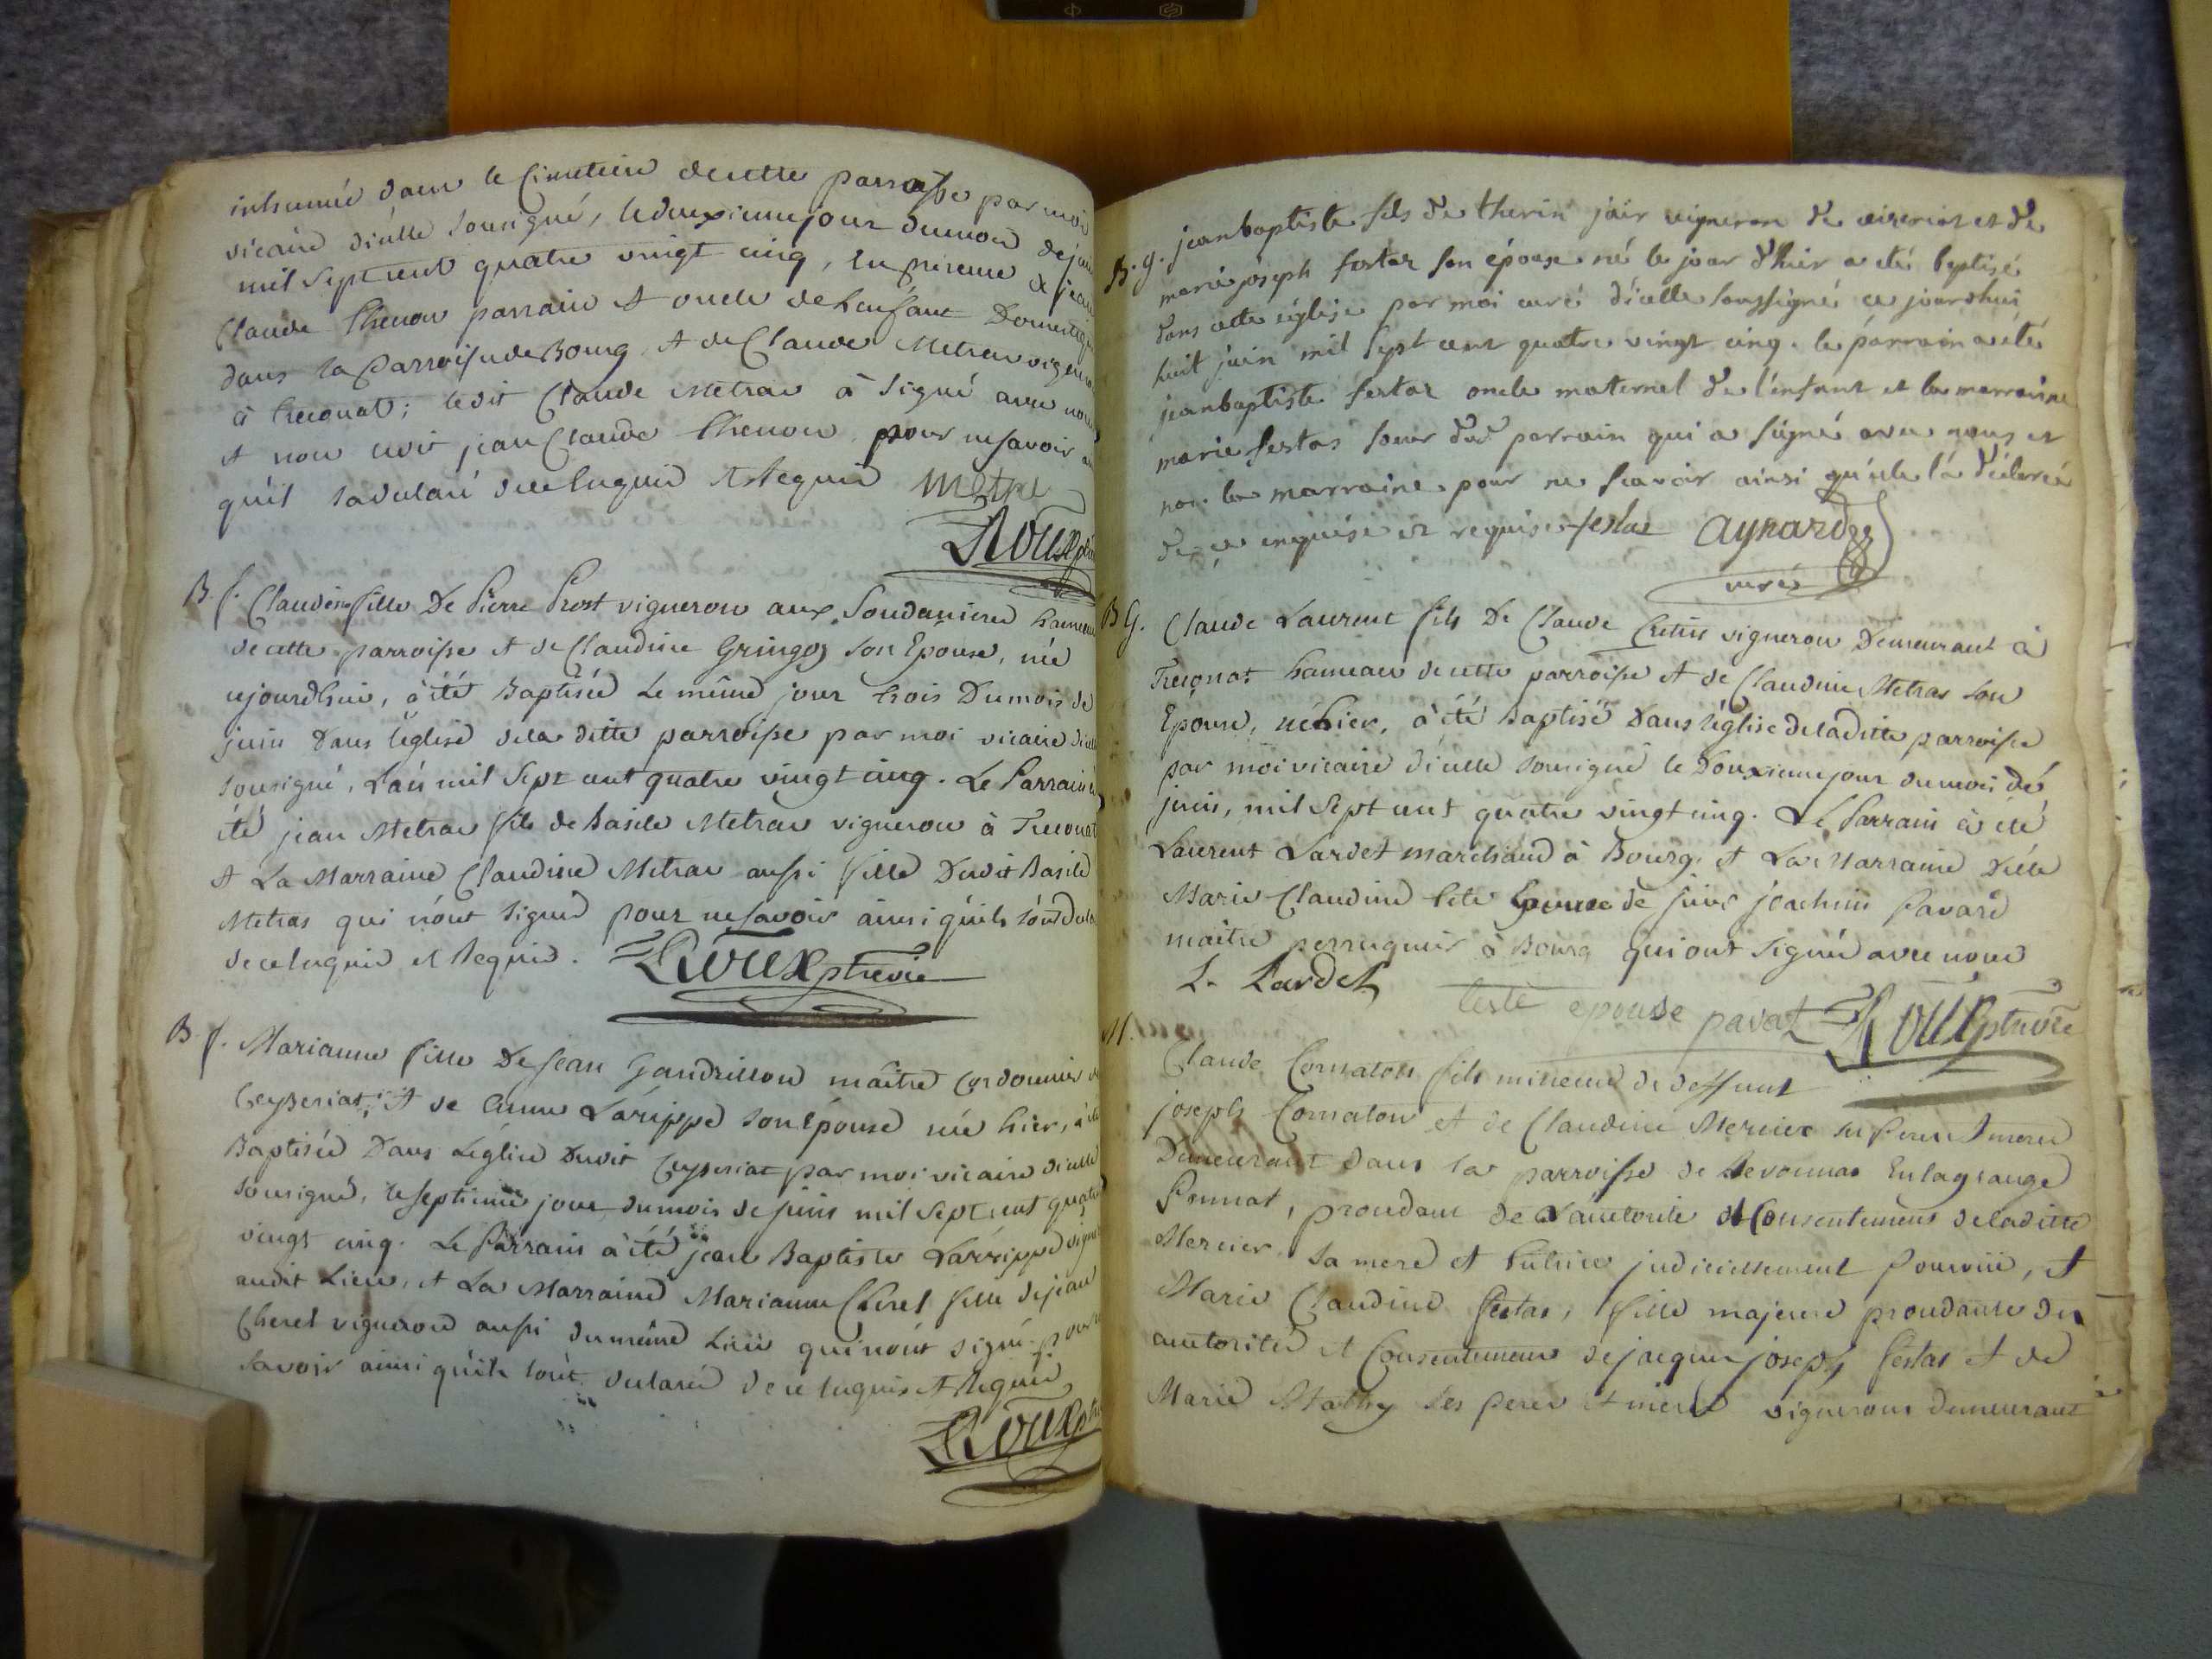 inhumé dans le Cimetiere de cette parroisse par moi
vicaire d'icelle sousigné, le deuxieme jour du mois de juin
mil sept cent quatre vingt cinq, En presence de jean
Claude Thenon parrain et oncle de Lenfant Domestique
dans la Parroisse de Bourg et de Claude Metras vigneron
à Treconat; ledit Claude Metras à signé avec nous
et non ledit jean Claude Thenon pour ne savoir
qu'il la declaré de ce Enquis et Requis Metras
Roux
B. f. Claudine fille De Pierre Prost vigneron aux Soudanieres hameau
de cette parroisse et de Claudine Gringoz son Epouse, née
cejourdhui, à été Baptisée Le même jour trois Du mois de
juin Dans l'église dela ditte parroisse par moi vicaire d'icelle
sousigné, L'an mil sept cent quatre vingt cinq. Le Parrain à
été jean Metras fils de Basile Metras vigneron à Treconat
et La Marraine Claudine Metras aussi fille Dudit Basile
Metras qui n'ont signé pour ne savoir ainsi qu'ils l'ont
de ce Enquis et Requis. Roux ptre vic
B. f. Marianne fille De Jean Gandrillon maître Cordonnier
Ceyzeriat; et de Anne Larippe son Epouse née hier, à été
Baptisée Dans L'église Dudit Ceyzeriat par moi vicaire d'icelle
sousigné, le septieme jour du mois de juin mil sept cent quatre
vingt cinq. Le Parrain à été jean Baptiste Larrippe
audit Lieu, et La Marraine Marianne Cheret fille de jean
Cheret vigneron aussi du même Lieu qui n'ont signé pour ne
savoir ainsi qu'ils l'ont declaré de ce Enquis et Requis
Roux
B. g. jean baptiste fils de therin jair vigneron de et de
marie joseph festas son épouse né le jour d'hier a eté baptisé
dans cette église par moi curé d'icelle soussigné ce jourdhui
huit juin mil sept cent quatre vingt cinq. le parrain a été
jean baptiste festas oncle maternel de l'enfant et la marraine
marie festas soeur dud parrain qui a signé avec nous et
non la marraine pour ne scavoir ainsi qu'elle l'a déclaré
de ce enquise et requise festas Aynard
curé
B G. Claude Laurent fils De Claude Cretin vigneron Demeurant à
Treconat hameau de cette parroisse et de Claudine Metras son
Epouse, né hier, à été baptisé Dans l'église de laditte parroisse
par moi vicaire d'icelle sousigné le Douxieme jour du mois de
juin, mil sept cent quatre vingt cinq. Le Parrain à été
Laurent Lardet marchand à Bourg, et La Marraine
Marie Claudine Epouse de joachim Pavard
maitre perruquier à Bourg qui ont signé avec nous
L. Lardet
Teste epouse pavat Roux ptre vic
M. Claude Cornaton fils mineur de deffunt
joseph Cornaton et de Claudine Mercier ses pere et mere
Demeurant dans la parroisse de Revonnas En la grange
Ponnat, procedant de L'autorite et Consentement de laditte
Mercier sa mere et Tutrice judiciellement Pourvue, et
Marie Claudine Festas, fille majeure procedante des
autorités et Consentement de jacque joseph festas et de
Marie Mathy ses pere et mere vignerons demeurant